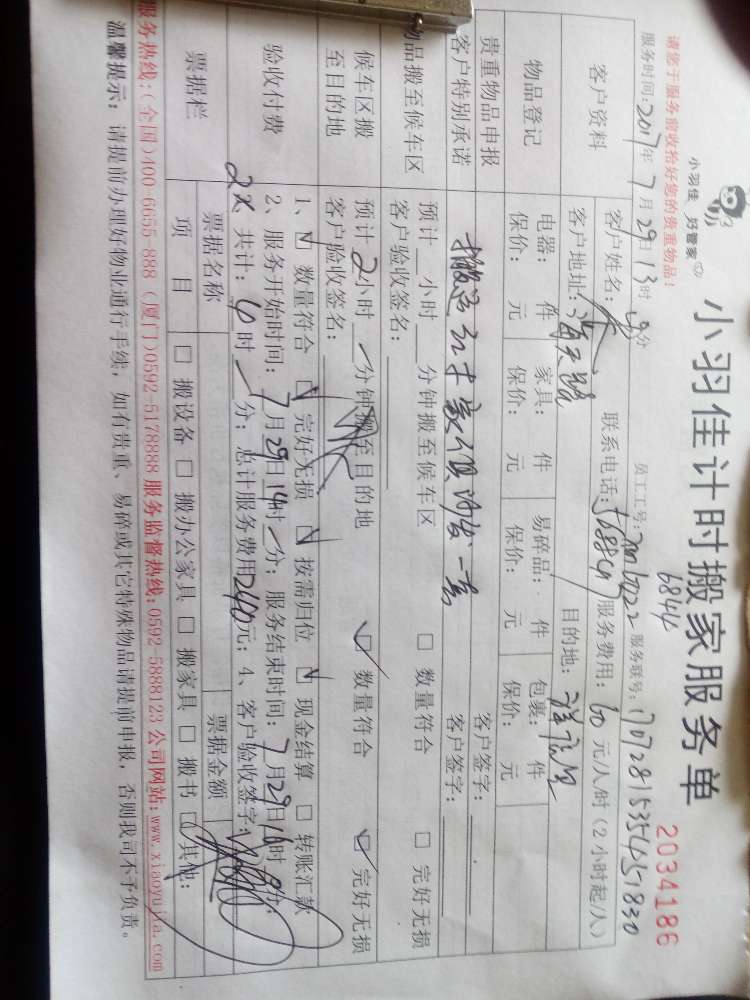 小羽佳 好管家
小羽佳计时搬家服务单
2034186
请您于服务前收拾好您的贵重物品！
员工工号： 服务联号：
6844
服务时间：2017年7月29日13时 分
客户资料
客户姓名： 联系电话： 服务费用：60元/人/时（2小时起/人）
客户地址： 目的地：
物品登记
电器： 件 家具： 件 易碎品： 件 包裹： 件
保价： 元 保价： 元 保价： 元 保价： 元
贵重物品申报 客户签字：
客户特别承诺 客户签字：
物品搬至候车区
预计 小时 分钟搬至候车区 □ 数量符合 □ 完好无损
客户验收签名：
候车区搬至目的地
预计2小时 分钟搬至目的地 ☑ 数量符合 ☑ 完好无损
客户验收签名：
验收付费
1、☑ 数量符合 ☑ 完好无损 ☑ 按需归位 ☑ 现金结算 □ 转账汇款
2、服务开始时间：7月29日14时 分；服务结束时间：7月29日16时 分；
2人 共计： 时 分；总计服务费用240元；4、客户验收签字：
票据栏
票据名称 票据金额
项 目 □ 搬设备 □ 搬办公家具 □ 搬家具 □ 搬书 □ 其他：
服务热线：（全国）400-6655-888（厦门）0592-5178888 服务监督热线：0592-5888123 公司网站：www.xiaoyujia.com
温馨提示：请提前办理好物业通行手续，如有贵重、易碎或其它特殊物品请提前申报，否则我司不予负责。